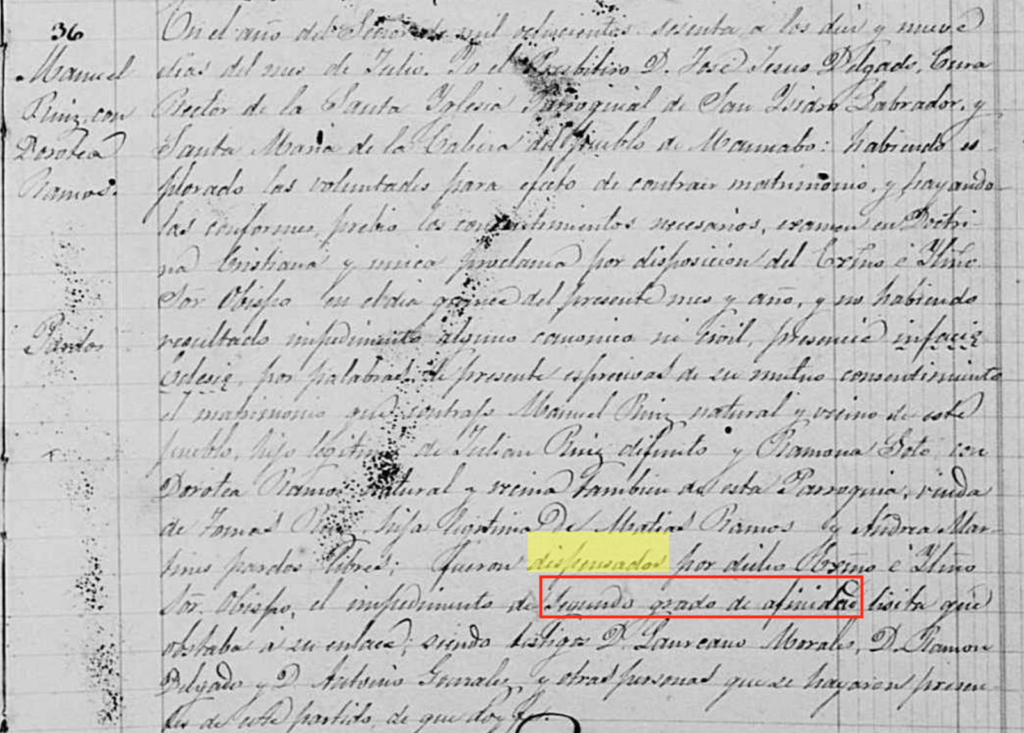 36
Manuel
Ruiz, con
Dorotea
Ramos.
Pardos
En el año del Señor de mil ochocientos sesenta a los diez y nueve
dias del mes de Julio. Yo el Presbitero D. José Jesus Delgado, Cura
Rector de la Santa Yglesia Parroquial de San Ysidro Labrador, y
Santa Maria de la Cabeza del pueblo de Maunabo: habiendo es-
plorado las voluntades para efecto de contraer matrimonio, y hayando
las conformes, prebio los consentimientos necesarios, examen en Doctri-
na Cristiana y unica proclama por disposicion del Exmo é Yltmo
Sor. Obispo en el dia quince del presente mes y año, y no habiendo
resultado impedimento alguno canonico ni civil, presencié in facie
eclesie, por palabras de presente espresivas de su mutuo consentimiento
el matrimonio que contrajo Manuel Ruiz natural y vecino de este
pueblo, hijo legitimo de Julian Ruiz difunto y Ramona Soto, con
Dorotea Ramos natural y vecina tambien de esta Parroquia, viuda
de Tomas hija legitima De Matias Ramos y Andrea Mar-
tines pardos libres; fueron dispensados por dicho Exmo é Yltmo
Sor. Obispo, el impedimento de segundo grado de afinidad lisita que
obstaba a su enlace; siendo testigos D. Laureano Morales, D. Ramon
Delgado y D. Antonio Gonsales y otras personas que se hayaron presen-
tes de este partido, de que doy fé.